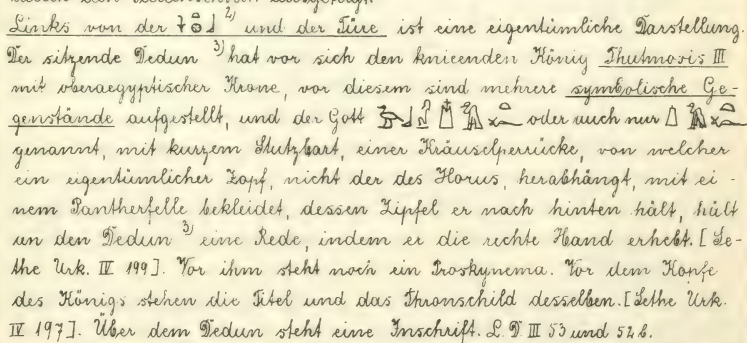 Links von der 𓌂𓐍𓃀 ²⁾ und der Türe ist eine eigentümliche Darstellung.
Der sitzende Dedun ³⁾ hat vor sich den knieenden König Thutmosis III
mit oberaegyptischer Krone, vor diesem sind mehrere symbolische Ge-
genstände aufgestellt, und der Gott oder auch nur
genannt, mit kurzem Stutzbart, einer Kräuselperrücke, von welcher
ein eigentümlicher Zopf, nicht der des Horus, herabhängt, mit ei-
nem Pantherfelle bekleidet, dessen Zipfel er nach hinten hält, hält
an den Dedun ³⁾ eine Rede, indem er die rechte Hand erhebt. [Se-
the Urk. IV 199]. Vor ihm steht noch ein Proskynema. Vor dem Kopfe
des Königs stehen die Titel und das Thronschild desselben. [Sethe Urk.
IV 197]. Über dem Dedun steht eine Inschrift. L. D. III 53 und 54 b.